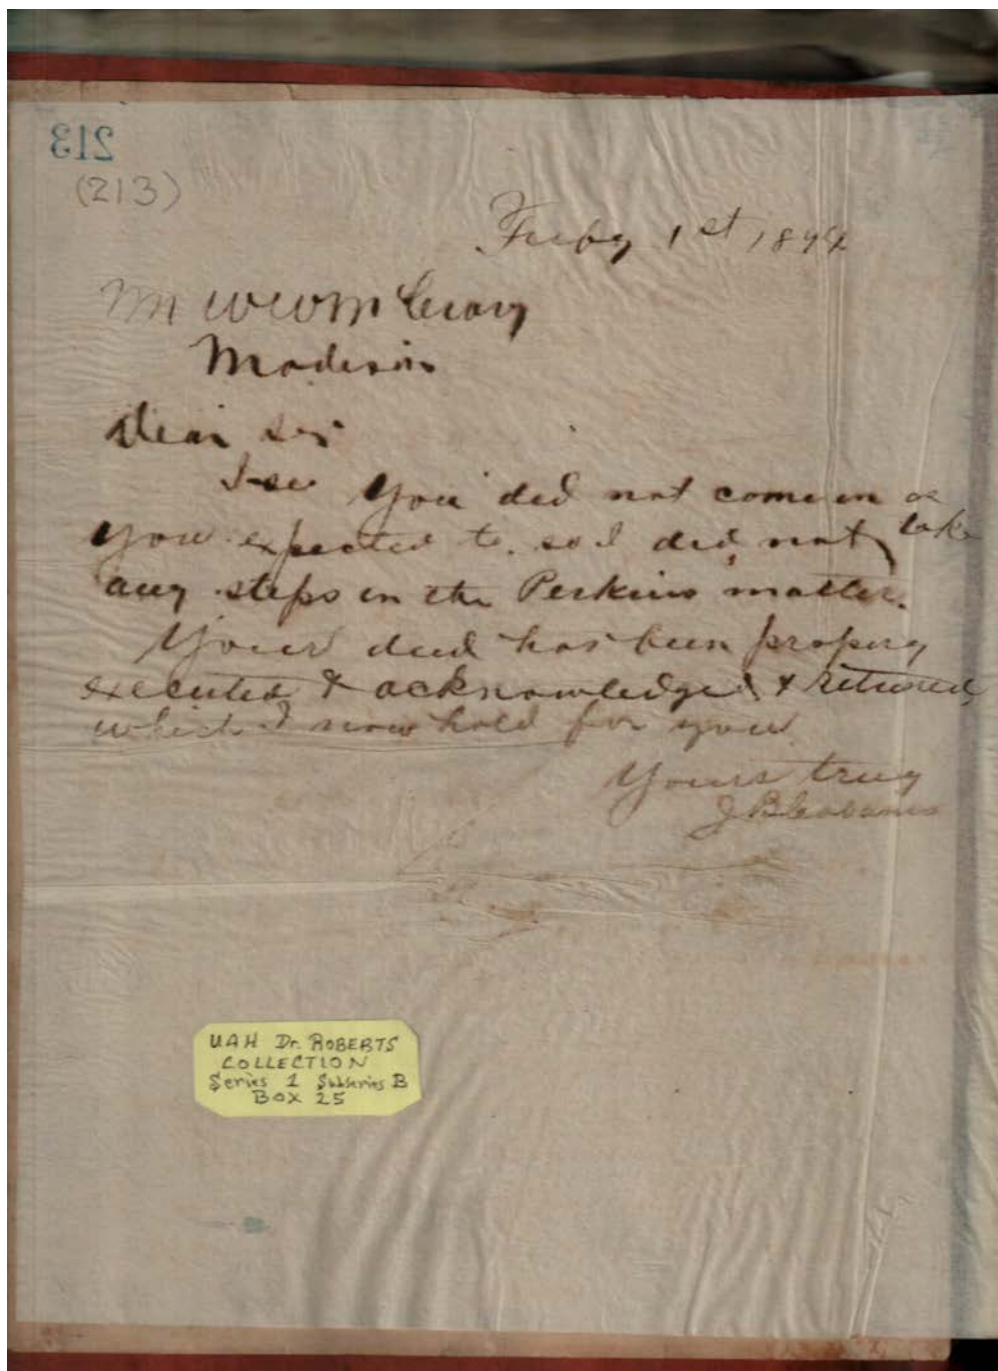 213
(213)
Feby 1st, 189
Mr W W McCrary
Madison
Dear Sir
I see you did not come in as
you expected to, so I did not take
any steps in the Perkins matter.
Your deed has been propery
executed & acknowledged & returned,
which I now hold for you
Yours truy
J B Cabaniss
UAH Dr. ROBERTS
COLLECTION
Series 1 Subseries B
BOX 25